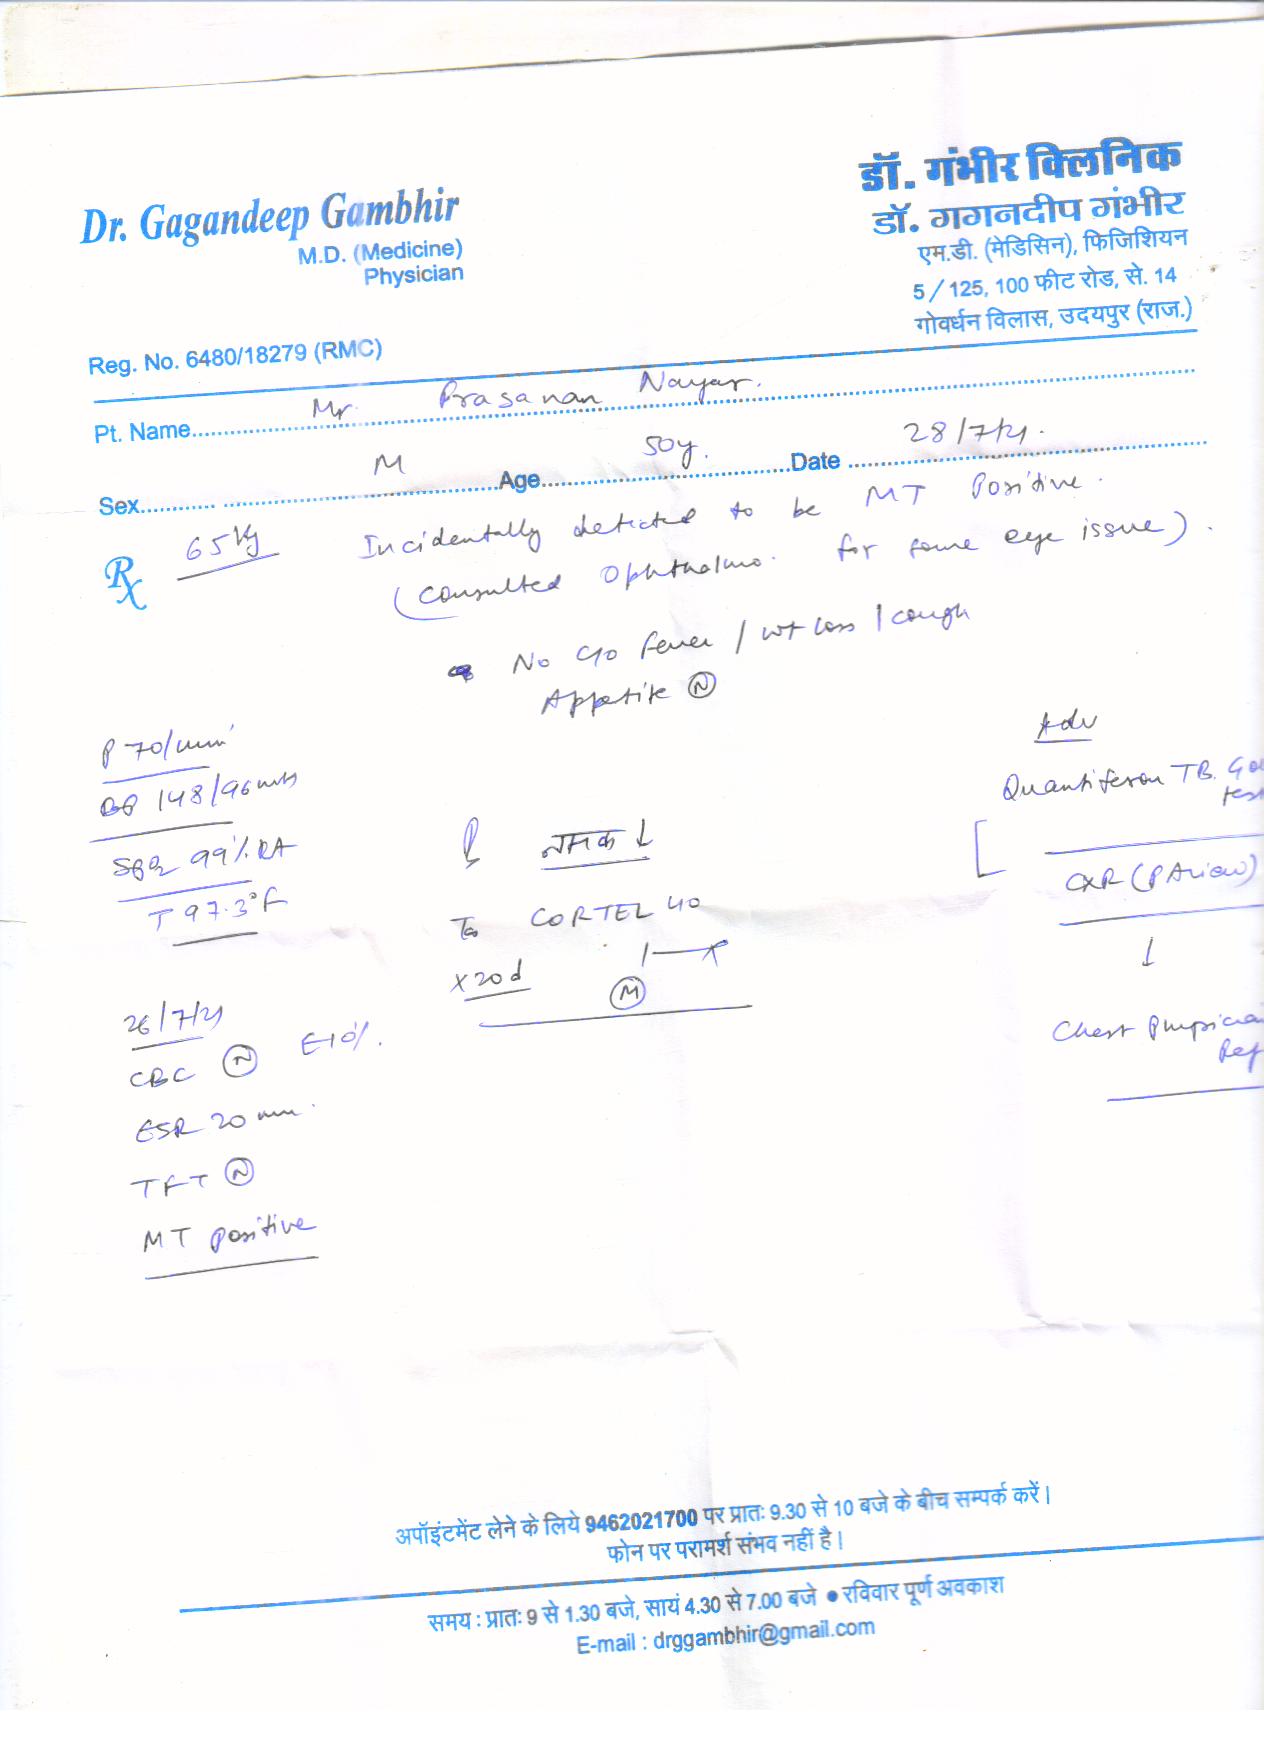 Dr. Gagandeep Gambhir
M.D. (Medicine)
Physician
Reg. No. 6480/18279 (RMC)
डॉ. गंभीर क्लिनिक
डॉ. गगनदीप गंभीर
एम.डी. (मेडिसिन), फिजिशियन
5 / 125, 100 फीट रोड, से. 14
गोवर्धन विलास, उदयपुर (राज.)
Pt. Name Mr. Prasanan Nayar.
Sex M Age 50y. Date 28/7/21.
Rx 65 kg Incidentally detected to be MT Positive.
(Consulted Ophthalmo. for some eye issue).
No c/o fever / wt loss / cough
Appetite (N)
P 70/min
BP 148/96 mmHg
SPO2 99% RA
T 97.3°F
26/7/21
CBC (N) E-10%.
ESR 20 mm.
TFT (N)
MT Positive
नमक ↓
CORTEL 40
x 20 d
1——x
(M)
Adv
Quantiferon TB. Go
tes
CXR (PA view)
↓
Chest Physicia
Ref
अपॉइंटमेंट लेने के लिये 9462021700 पर प्रातः 9.30 से 10 बजे के बीच सम्पर्क करें।
फोन पर परामर्श संभव नहीं है।
समय : प्रातः 9 से 1.30 बजे, सायं 4.30 से 7.00 बजे ● रविवार पूर्ण अवकाश
E-mail : drggambhir@gmail.com